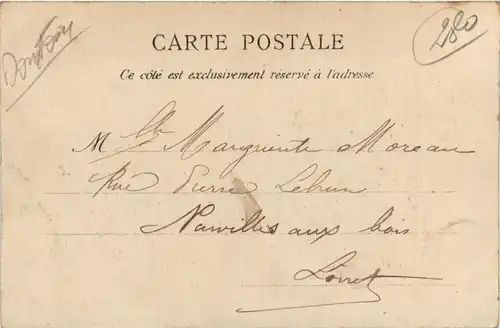 280
CARTE POSTALE
Ce côté est exclusivement réservé à l'adresse
Mlle Marguerite Moreau
Rue Pierre Lebrun
Neuvilles aux bois
Loiret